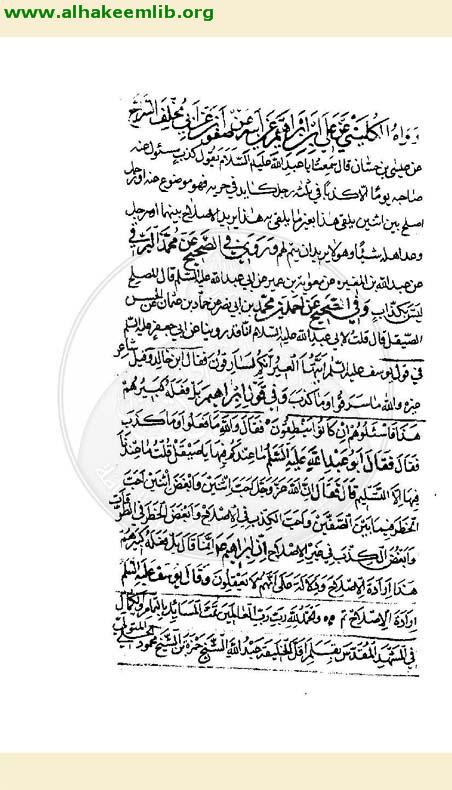 www.alhakeemlib.org
رواه الكليني عن علي بن ابراهيم عن ابيه عن صفوان عن ابي مخلد السراج
عن عيسى بن حسان قال سمعت ابا عبد الله عليه السلام يقول كل كذب مسئول عنه
صاحبه يوما الا كذبا في ثلثه رجل كايد في حربه فهو موضوع عنه او رجل
اصلح بين اثنين يلقى هذا بغير ما يلقى به هذا يريد الاصلاح بينهما او رجل
وعد اهله شيئا وهو لا يريد ان يتم لهم وروينا في الصحيح عن محمد
عن عبد الله بن المغيره عن معويه بن عمار عن ابي عبد الله عليه السلام قال المصلح
ليس بكذاب وفي الصحيح عن احمد بن محمد بن ابي نصر عن حماد بن عثمان عن الحسن
الصيقل قال قلت لابي عبد الله عليه السلام انا قد روينا عن ابي جعفر عليه السلام
في قول يوسف عليه السلام ايتها العير انكم لسارقون فقال
والله ما سرقوا وما كذب وفي قول ابراهيم بل فعله كبيرهم
هذا فاسئلوهم ان كانوا ينطقون فقال والله ما فعلوا وما كذب
فقال فقال ابو عبد الله عليه السلام ما عندكم فيها يا صيقل قلت ما عندنا
فيها الا التسليم قال فقال ان الله عز وجل احب اثنين وابغض اثنين احب
الخطر فيما بين الصفين واحب الكذب في الاصلاح وابغض الخطر في الطرقات
وابغض الكذب في غير الاصلاح ان ابراهيم انما قال بل فعله كبيرهم
هذا ارادة الاصلاح ودلالة على انهم لا يعقلون وقال يوسف عليه السلم
ارادة الاصلاح تم والحمد لله رب العالمين تمت المسائل
في المشهد المقدس بقلم اقل الخليقه عبد الله الشيخ حمزه بن الشيخ محمود